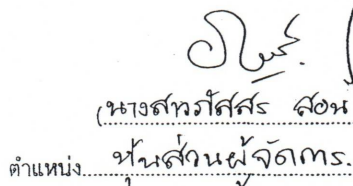 (นางสาวภัสสร สอน
ตำแหน่ง หุ้นส่วนผู้จัดการ.